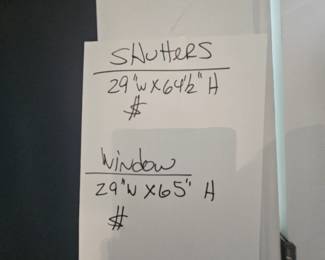 SHUTTERS
29"W X 64 1/2" H
$
WINDOW
29"W X 65" H
$